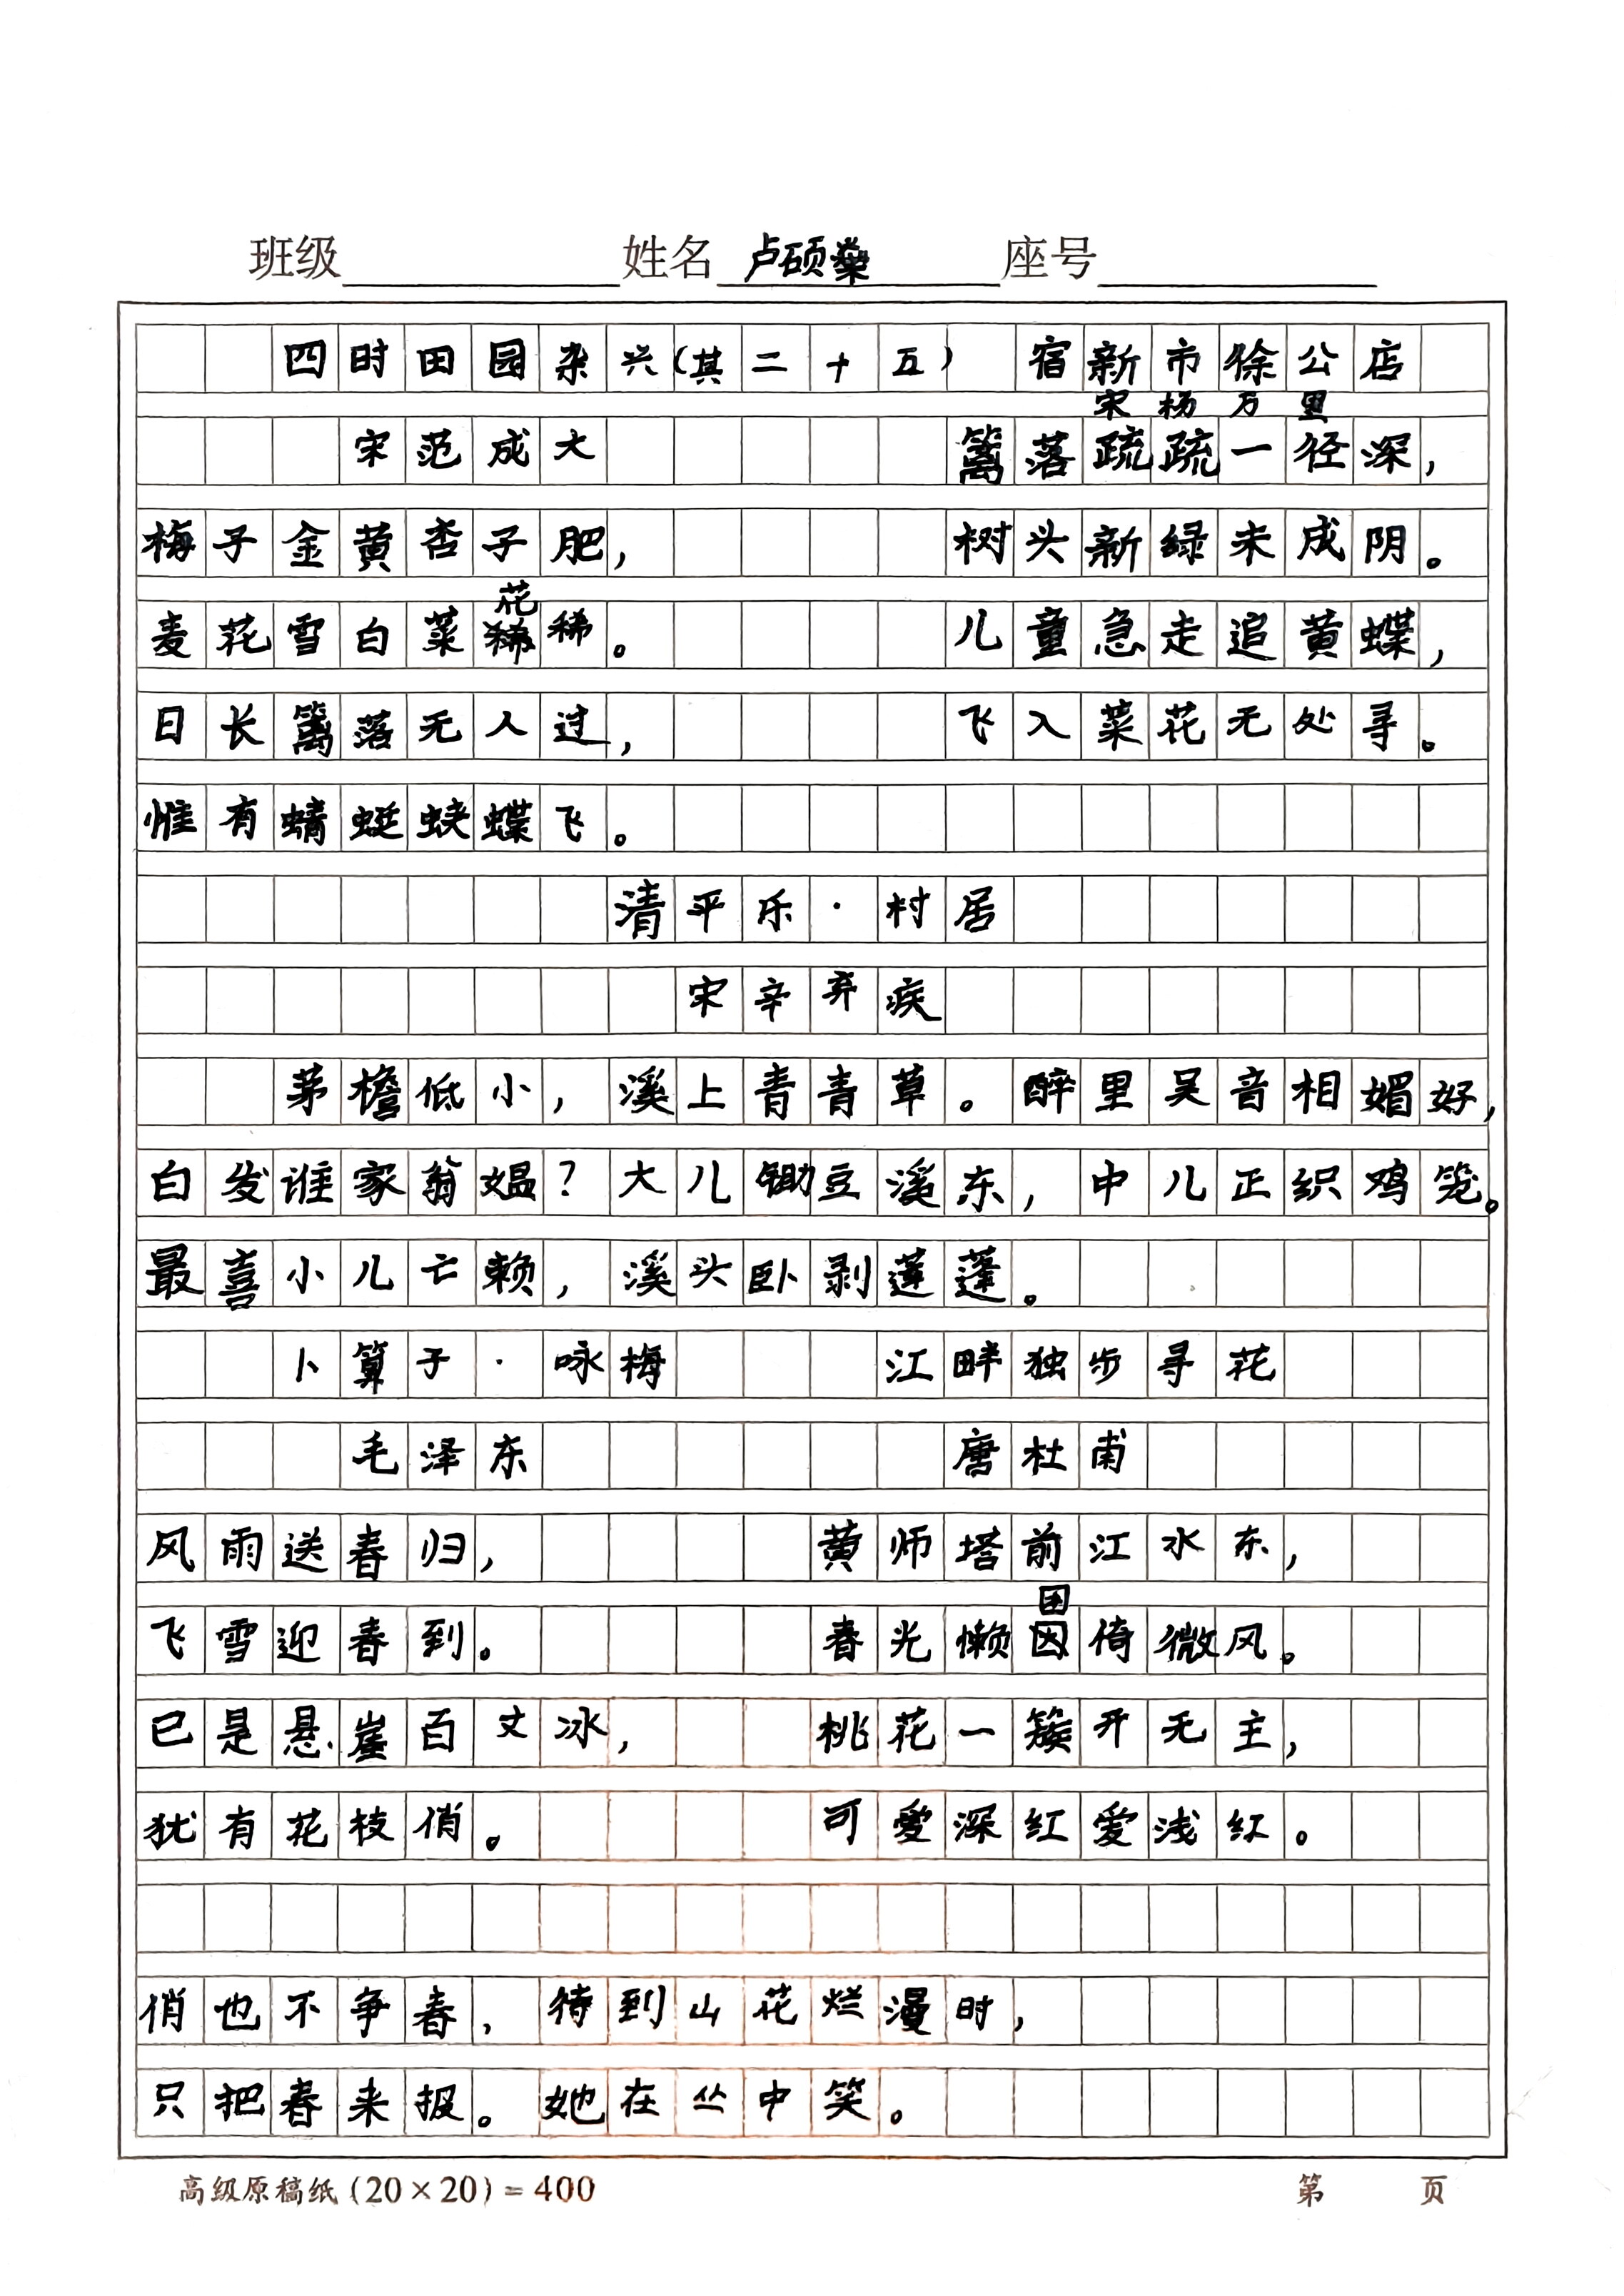 班级 姓名 卢硕燊 座号
四时田园杂兴(其二十五) 宿新市徐公店
宋杨万里
宋范成大 篱落疏疏一径深,
梅子金黄杏子肥, 树头新绿未成阴。
花
麦花雪白菜稀稀。 儿童急走追黄蝶,
日长篱落无人过, 飞入菜花无处寻。
惟有蜻蜓蛱蝶飞。
清平乐·村居
宋辛弃疾
茅檐低小,溪上青青草。醉里吴音相媚好,
白发谁家翁媪?大儿锄豆溪东,中儿正织鸡笼。
最喜小儿亡赖,溪头卧剥莲蓬。
卜算子·咏梅 江畔独步寻花
毛泽东 唐杜甫
风雨送春归, 黄师塔前江水东,
困
飞雪迎春到。 春光懒因倚微风。
已是悬崖百丈冰, 桃花一簇开无主,
犹有花枝俏。 可爱深红爱浅红。
俏也不争春, 待到山花烂漫时,
只把春来报。 她在丛中笑。
高级原稿纸(20×20)=400 第 页